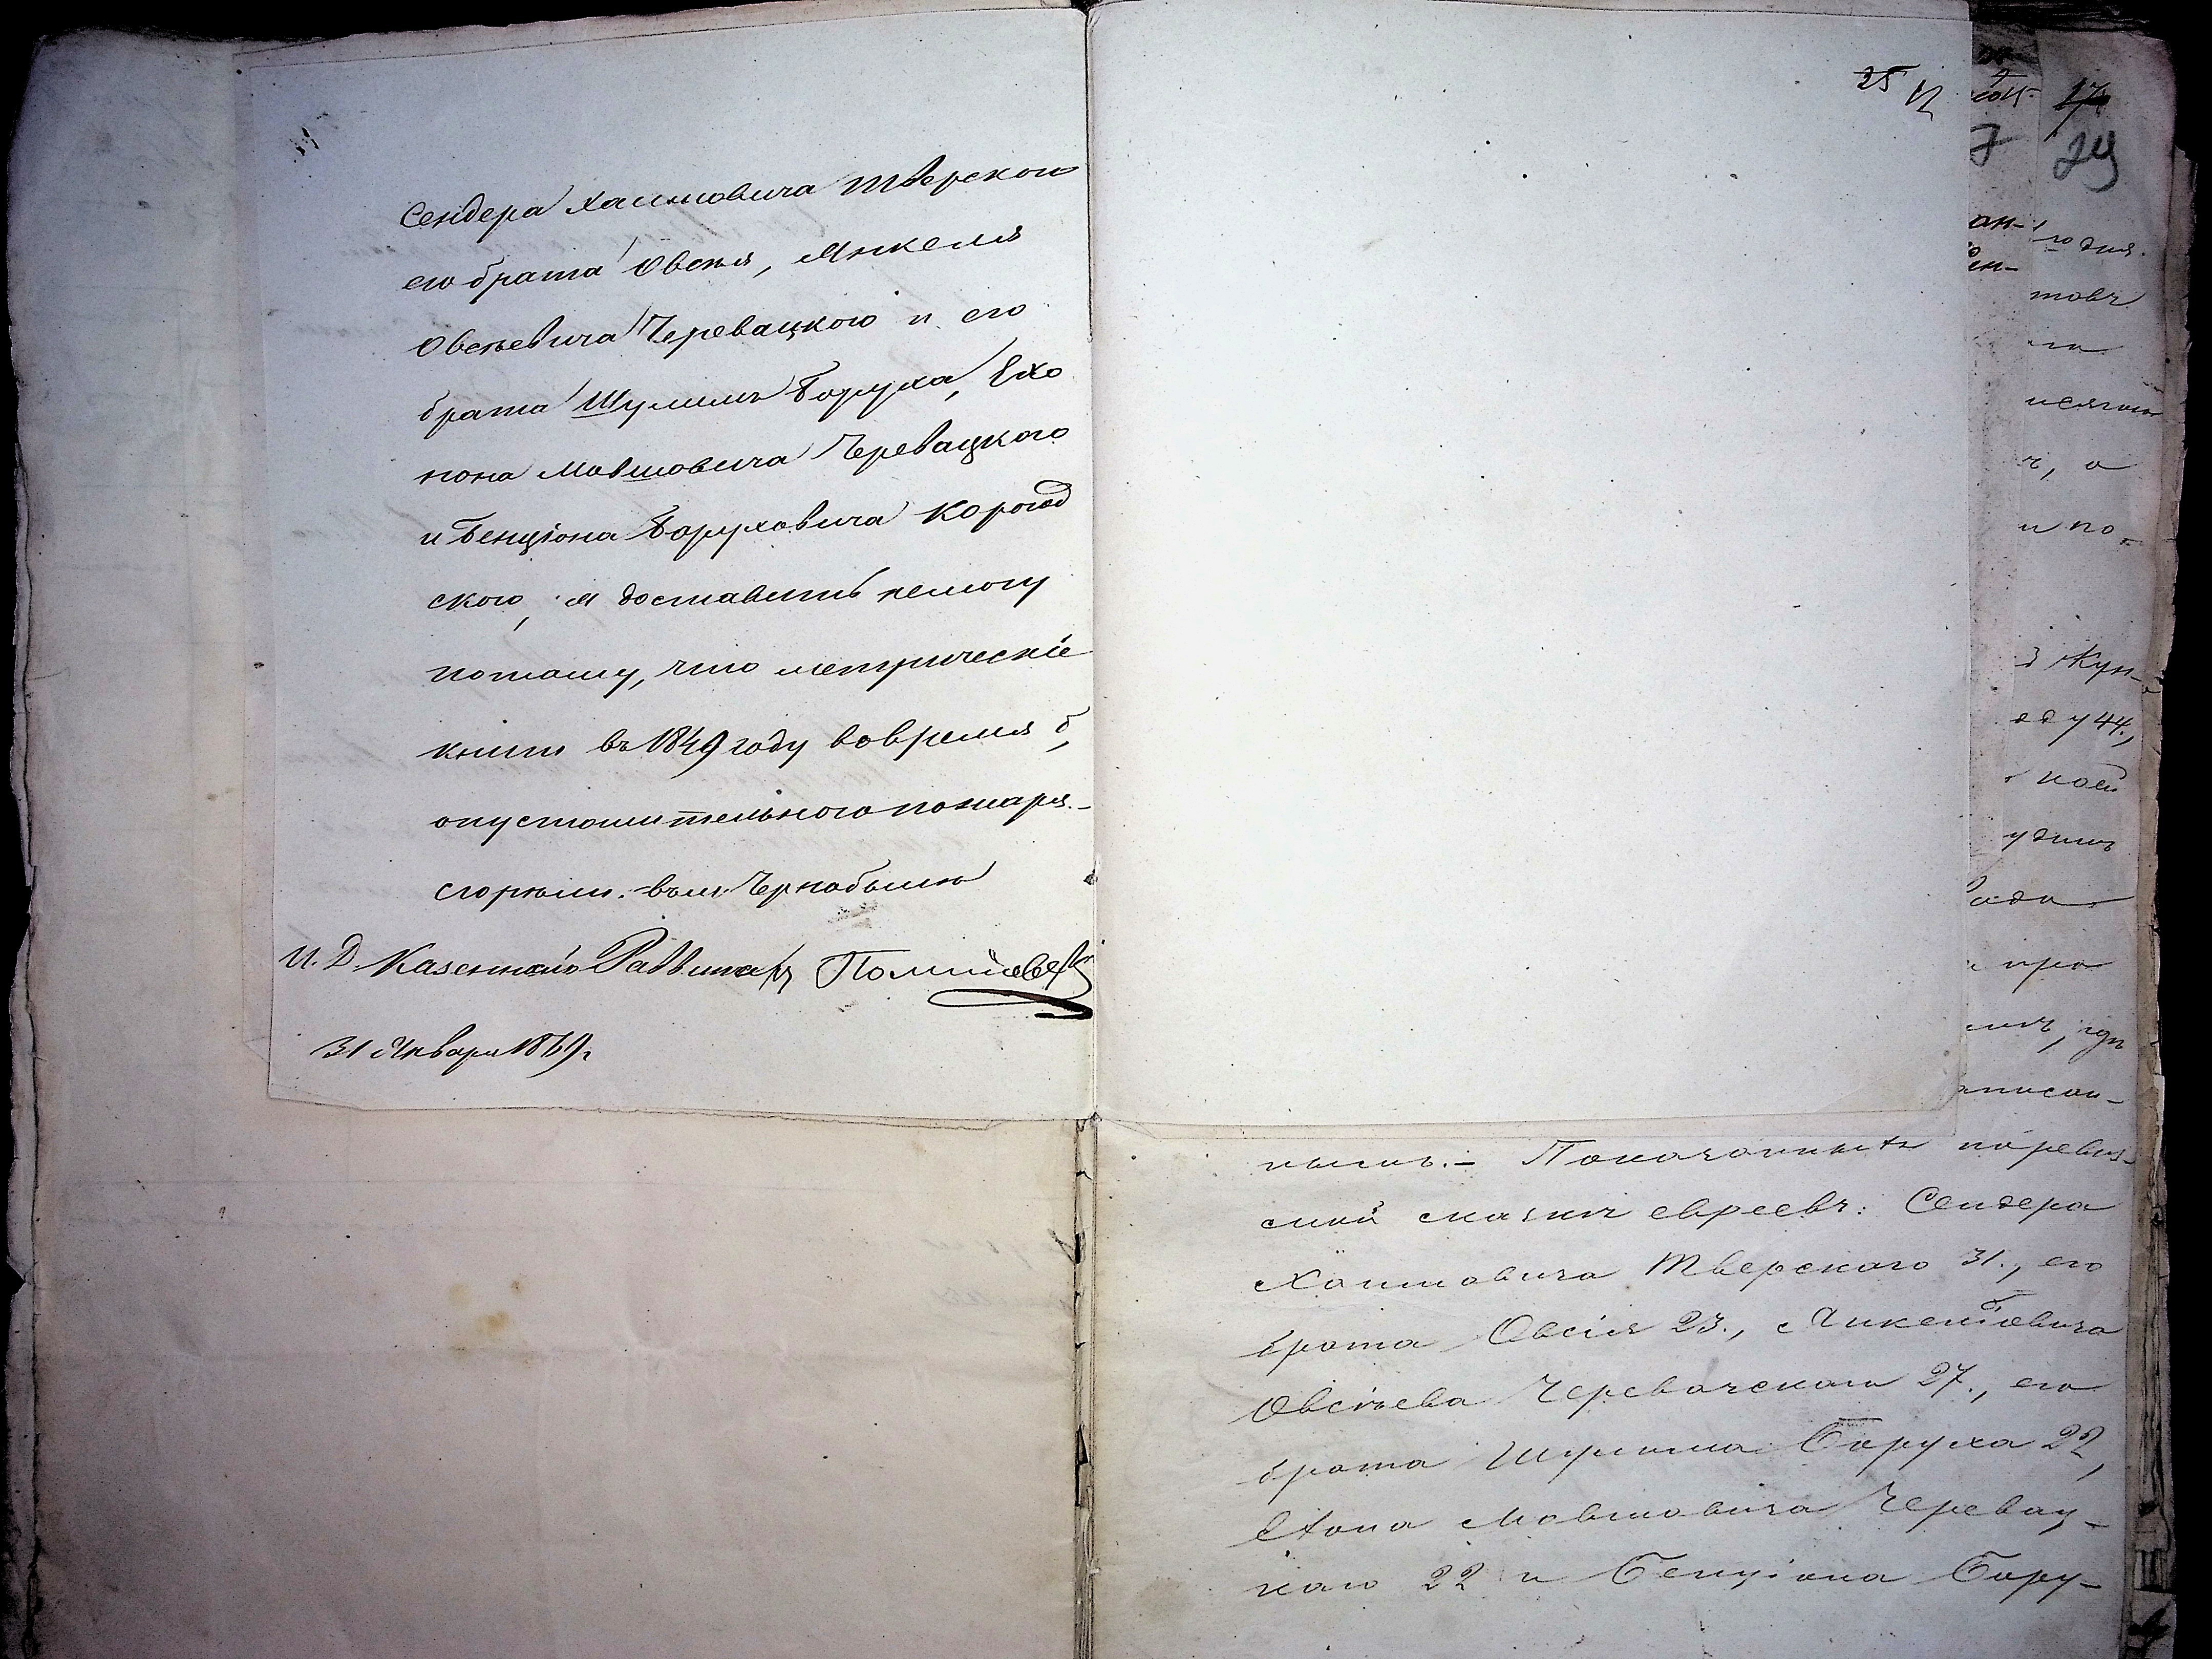 Сендера Хаимовича Тверского
его брата Овсѣя, Янкеля
Овсѣевича Черевацкого и его
брата Шулима Боруха, Ехо
нона Мовшовича Черевацкого
и Бенціона Боруховича Корогод
ского, я доставить немогу
потому, что метрическіе
книги въ 1849 году вовремя б,
опустошительного пожара.-
сгорѣли. въ м. Чернобыль
И. Д. Казеннаго Раввина
31 Января 1869г.
25 12
17
29
ан-
го дня.
товъ
ч, а
и по-
Жун-
у 44,
кой
про
писан-
нымъ.- Показанныхъ по ревиз-
ской сказкѣ евреевъ: Сендера
Хаимовича Тверскаго 31., его
брата Овсія 23.,
Овсѣева Черевачскаго 27., его
брата Шулима Боруха 22,
Ехона Мовшовича Черевац-
каго 22 и Бенціона Бору-